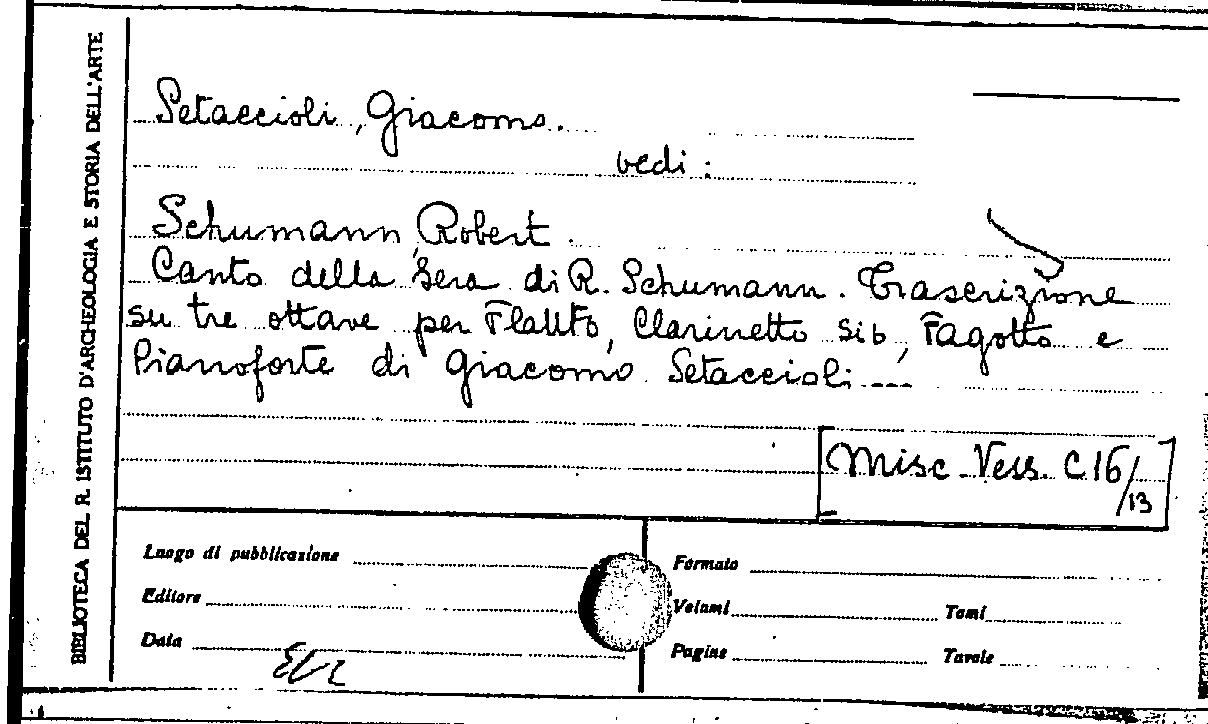 BIBLIOTECA DEL R. ISTITUTO D'ARCHEOLOGIA E STORIA DELL'ARTE
Setaccioli, Giacomo.
vedi:
Schumann, Robert.
Canto della Sera di R. Schumann. Trascrizione
su tre ottave per Flauto, Clarinetto Sib, Fagotto e
Pianoforte di Giacomo Setaccioli....
Misc. Vess. C 16/13
Luogo di pubblicazione
Formato
Editore
Volumi
Tomi
Data
Pagine
Tavole